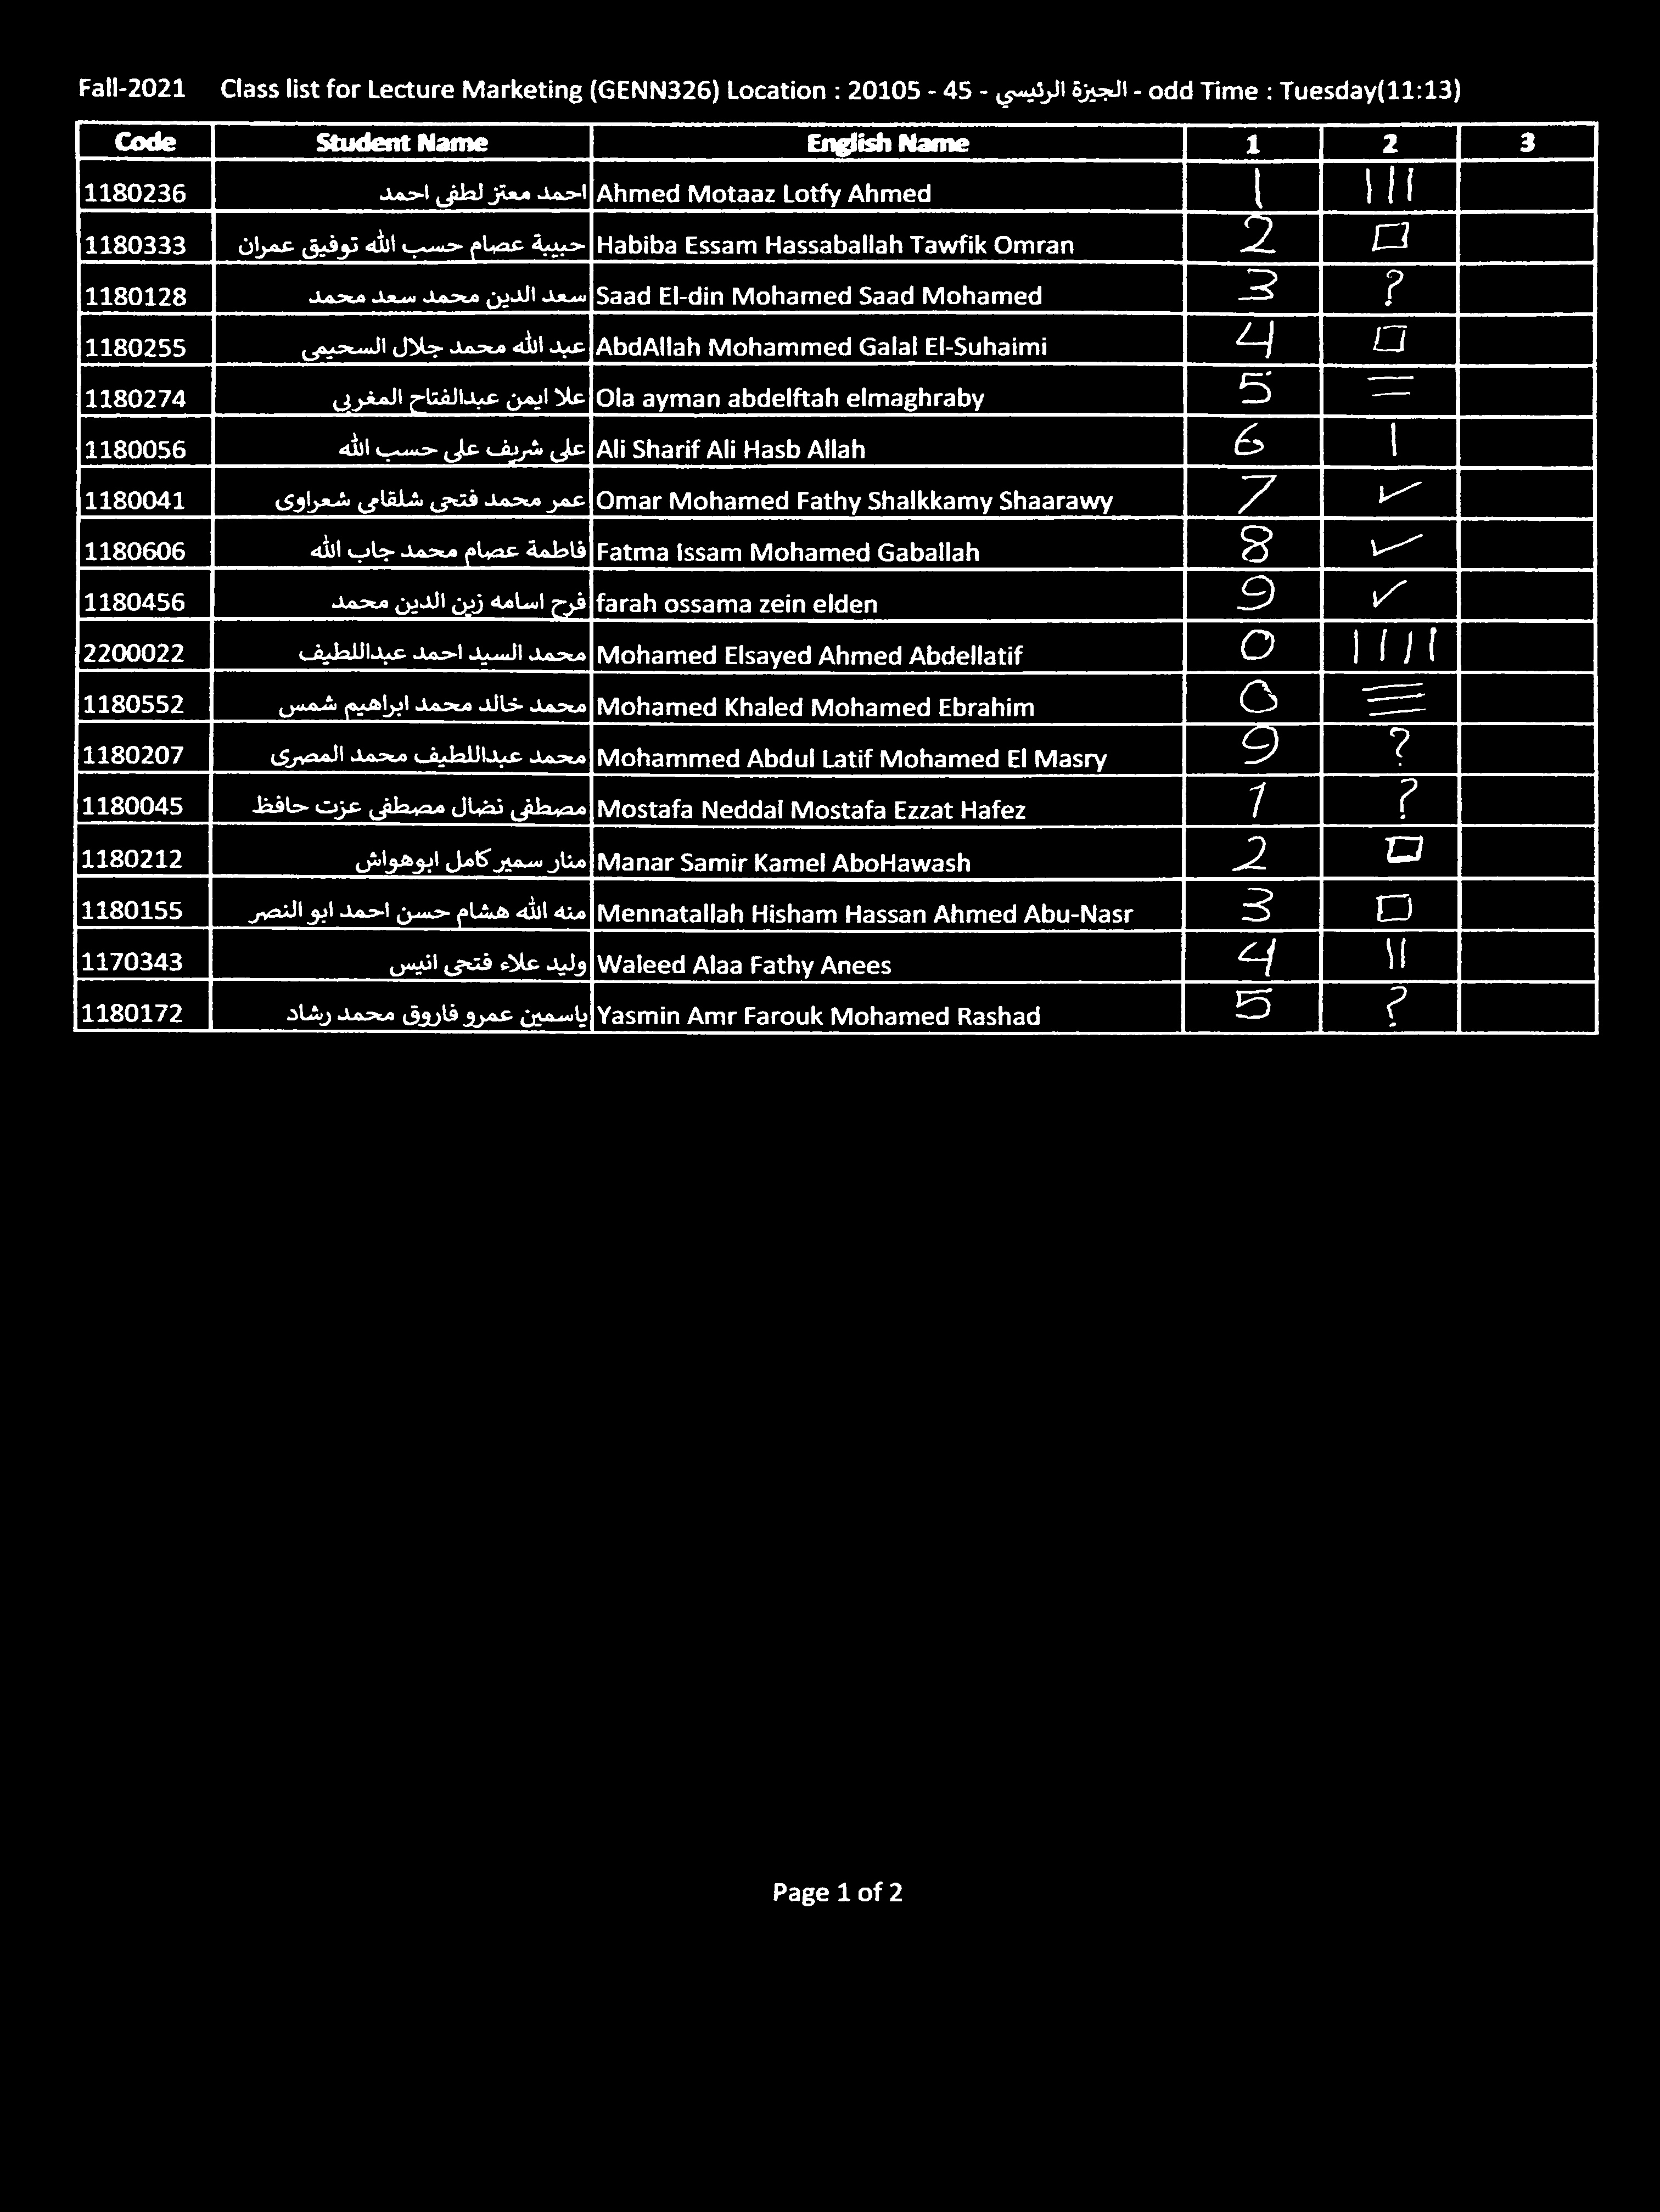 Fall-2021 Class list for Lecture Marketing (GENN326) Location : 20105 - 45 - الجيزة الرئيسي - odd Time : Tuesday(11:13)
Code Student Name English Name 1 2 3
1180236 احمد معتز لطفى احمد Ahmed Motaaz Lotfy Ahmed 1 |||
1180333 حبيبة عصام حسب الله توفيق عمران Habiba Essam Hassaballah Tawfik Omran 2 □
1180128 سعد الدين محمد سعد محمد Saad El-din Mohamed Saad Mohamed 3 ?
1180255 عبد الله محمد جلال السحيمى AbdAllah Mohammed Galal El-Suhaimi 4 □
1180274 علا ايمن عبدالفتاح المغربي Ola ayman abdelftah elmaghraby 5 =
1180056 على شريف على حسب الله Ali Sharif Ali Hasb Allah 6 |
1180041 عمر محمد فتحى شلقامى شعراوى Omar Mohamed Fathy Shalkkamy Shaarawy 7 ✓
1180606 فاطمة عصام محمد جاب الله Fatma Issam Mohamed Gaballah 8 ✓
1180456 فرح اسامه زين الدين محمد farah ossama zein elden 9 ✓
2200022 محمد السيد احمد عبداللطيف Mohamed Elsayed Ahmed Abdellatif 0 ||||
1180552 محمد خالد محمد ابراهيم شمس Mohamed Khaled Mohamed Ebrahim 0 ≡
1180207 محمد عبداللطيف محمد المصرى Mohammed Abdul Latif Mohamed El Masry 9 ?
1180045 مصطفى نضال مصطفى عزت حافظ Mostafa Neddal Mostafa Ezzat Hafez 1 ?
1180212 منار سمير كامل ابوهواش Manar Samir Kamel AboHawash 2 □
1180155 منه الله هشام حسن احمد ابو النصر Mennatallah Hisham Hassan Ahmed Abu-Nasr 3 □
1170343 وليد علاء فتحى انيس Waleed Alaa Fathy Anees 4 ||
1180172 ياسمين عمرو فاروق محمد رشاد Yasmin Amr Farouk Mohamed Rashad 5 ?
Page 1 of 2